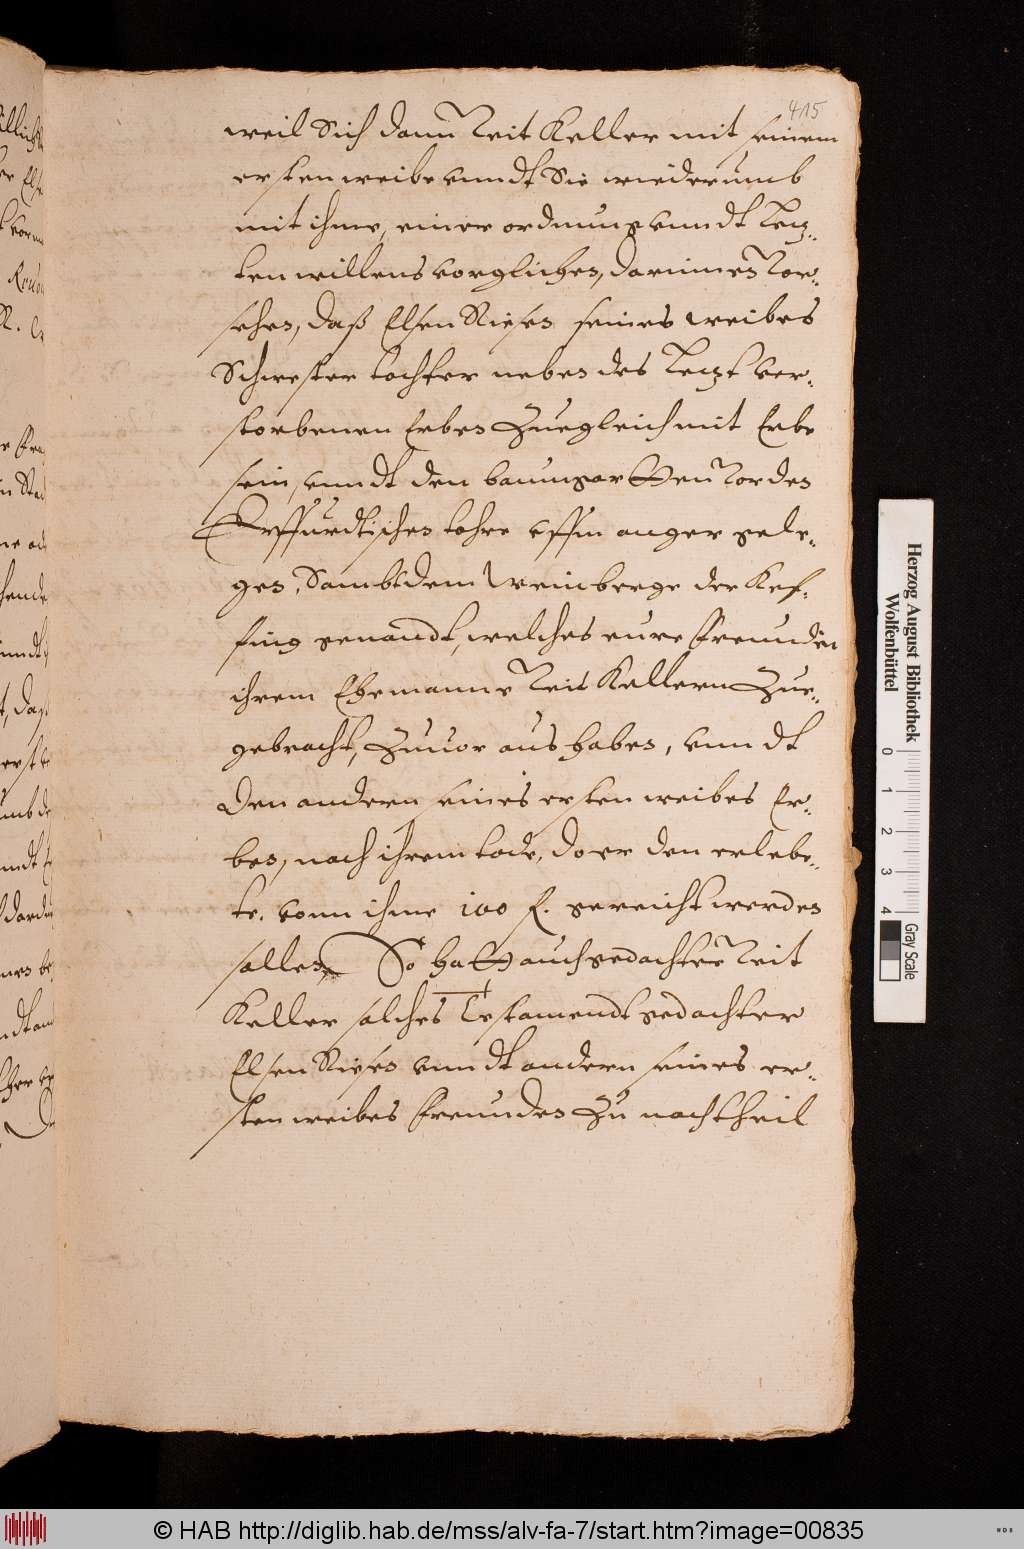 415
weil Sich dann Veit Keller mit seinem
ersten weibe vnndt Sie wiederumb
mit ihme, einer ordnung vnndt letz-
ten willens vorglichen, darinnen Vor-
sehen, daß Elsen Riesen seines weibes
Schwester tochter neben des letzt ver-
storbenen Erben Zuegleich mit Erbe
sein, vnndt den baumgartten Vor des
Erffurdtischen tohre vffm anger gele-
gen, Sambt dem Weinberge der Kef-
fing genandt, welches eure Freundin
ihrem Ehemanne Veit Kellern Zue-
gebracht, Zuuor aus haben, vnndt
Den andern seines ersten weibes Er-
ben, nach ihrem tode, do er den erlebe-
te, vonn ihme 100 f. gereicht werden
sollen, So hatt auch gedachter Veit
Keller solches Testamendt gedachter
Elsen Riesen vnndt andern seines er-
sten weibes Freunden Zu nachtheil
Herzog August Bibliothek
Wolfenbüttel
0 1 2 3 4
Gray Scale
© HAB http://diglib.hab.de/mss/alv-fa-7/start.htm?image=00835